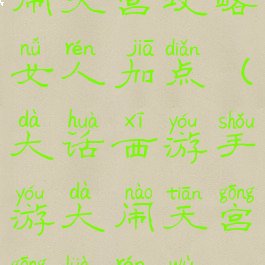 闹天宫攻略
nǚ rén jiā diǎn
女人加点（
dà huà xī yóu shǒu
大话西游手
yóu dà nào tiān gōng
游大闹天宫